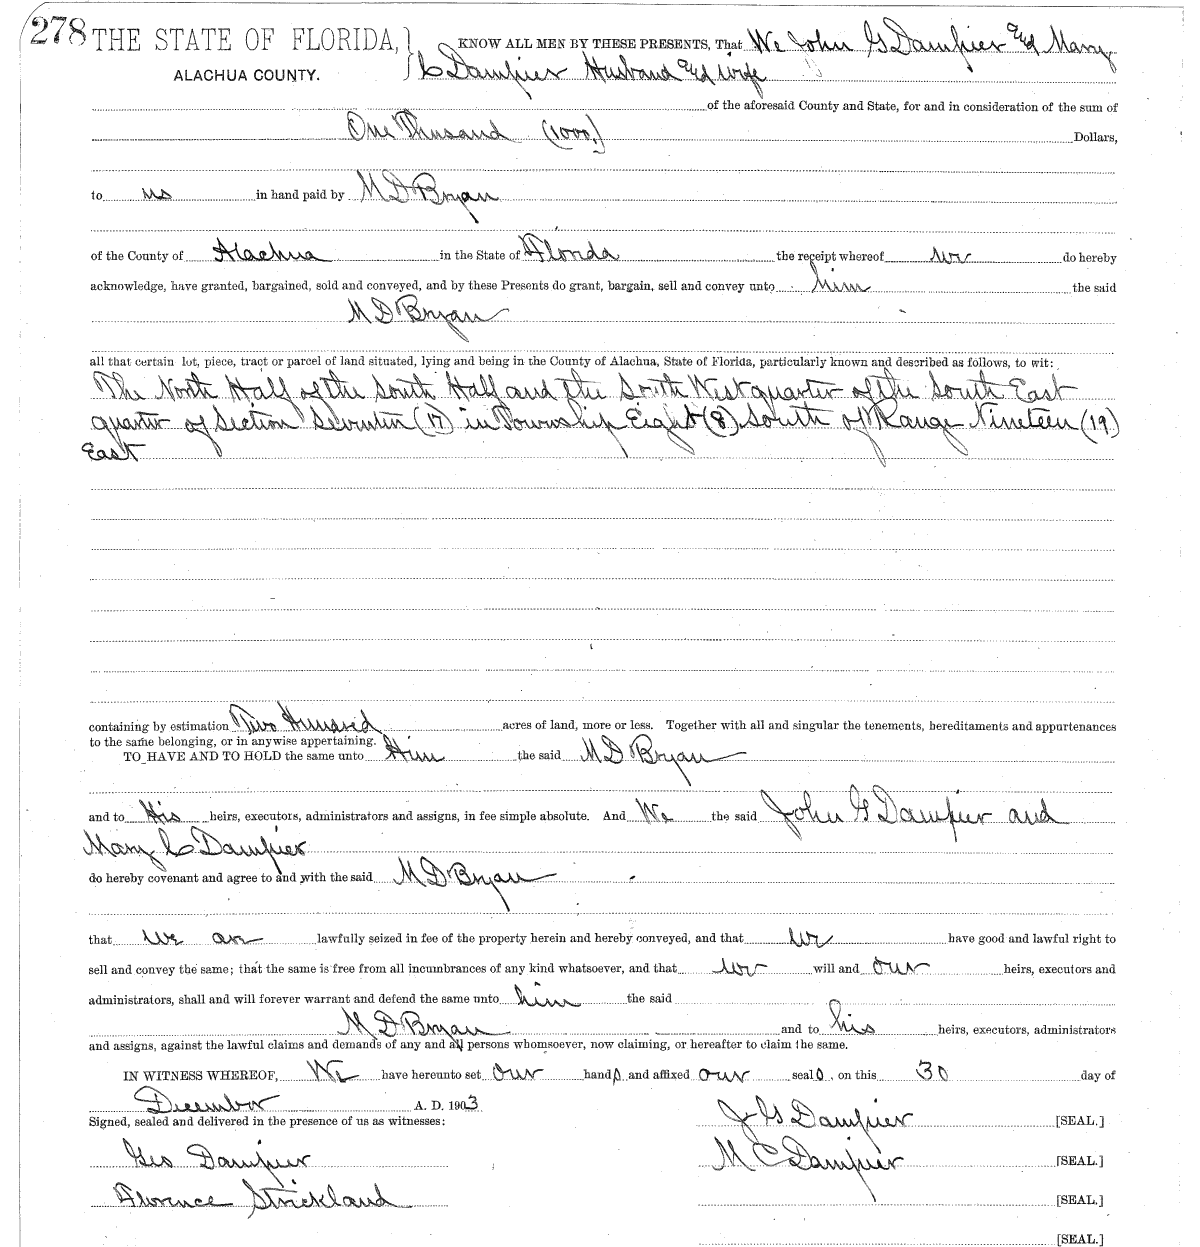 278 THE STATE OF FLORIDA, KNOW ALL MEN BY THESE PRESENTS, That We John G Dampier and Mary
ALACHUA COUNTY. C Dampier Husband and wife
of the aforesaid County and State, for and in consideration of the sum of
One Thusand (1000.) Dollars,
to us in hand paid by M D Bryan
of the County of Alachua in the State of Florida the receipt whereof we do hereby
acknowledge, have granted, bargained, sold and conveyed, and by these Presents do grant, bargain, sell and convey unto him the said
M D Bryan
all that certain lot, piece, tract or parcel of land situated, lying and being in the County of Alachua, State of Florida, particularly known and described as follows, to wit:
The North Half of the South Half and the South West quarter of the South East
quarter of Section Seventen (17) in Township Eight (8) South of Range Nineteen (19)
East
containing by estimation Two Hundred acres of land, more or less. Together with all and singular the tenements, hereditaments and appurtenances
to the same belonging, or in anywise appertaining.
TO HAVE AND TO HOLD the same unto Him the said M D Bryan
and to His heirs, executors, administrators and assigns, in fee simple absolute. And We the said John G Dampier and
Mary C Dampier
do hereby covenant and agree to and with the said M D Bryan
that we are lawfully seized in fee of the property herein and hereby conveyed, and that we have good and lawful right to
sell and convey the same; that the same is free from all incumbrances of any kind whatsoever, and that we will and our heirs, executors and
administrators, shall and will forever warrant and defend the same unto him the said
M D Bryan and to his heirs, executors, administrators
and assigns, against the lawful claims and demands of any and all persons whomsoever, now claiming, or hereafter to claim the same.
IN WITNESS WHEREOF, We have hereunto set our hands and affixed our seals, on this 30 day of
December A. D. 1903
Signed, sealed and delivered in the presence of us as witnesses: J G Dampier [SEAL.]
Geo Dampier M C Dampier [SEAL.]
Florence Strickland [SEAL.]
[SEAL.]